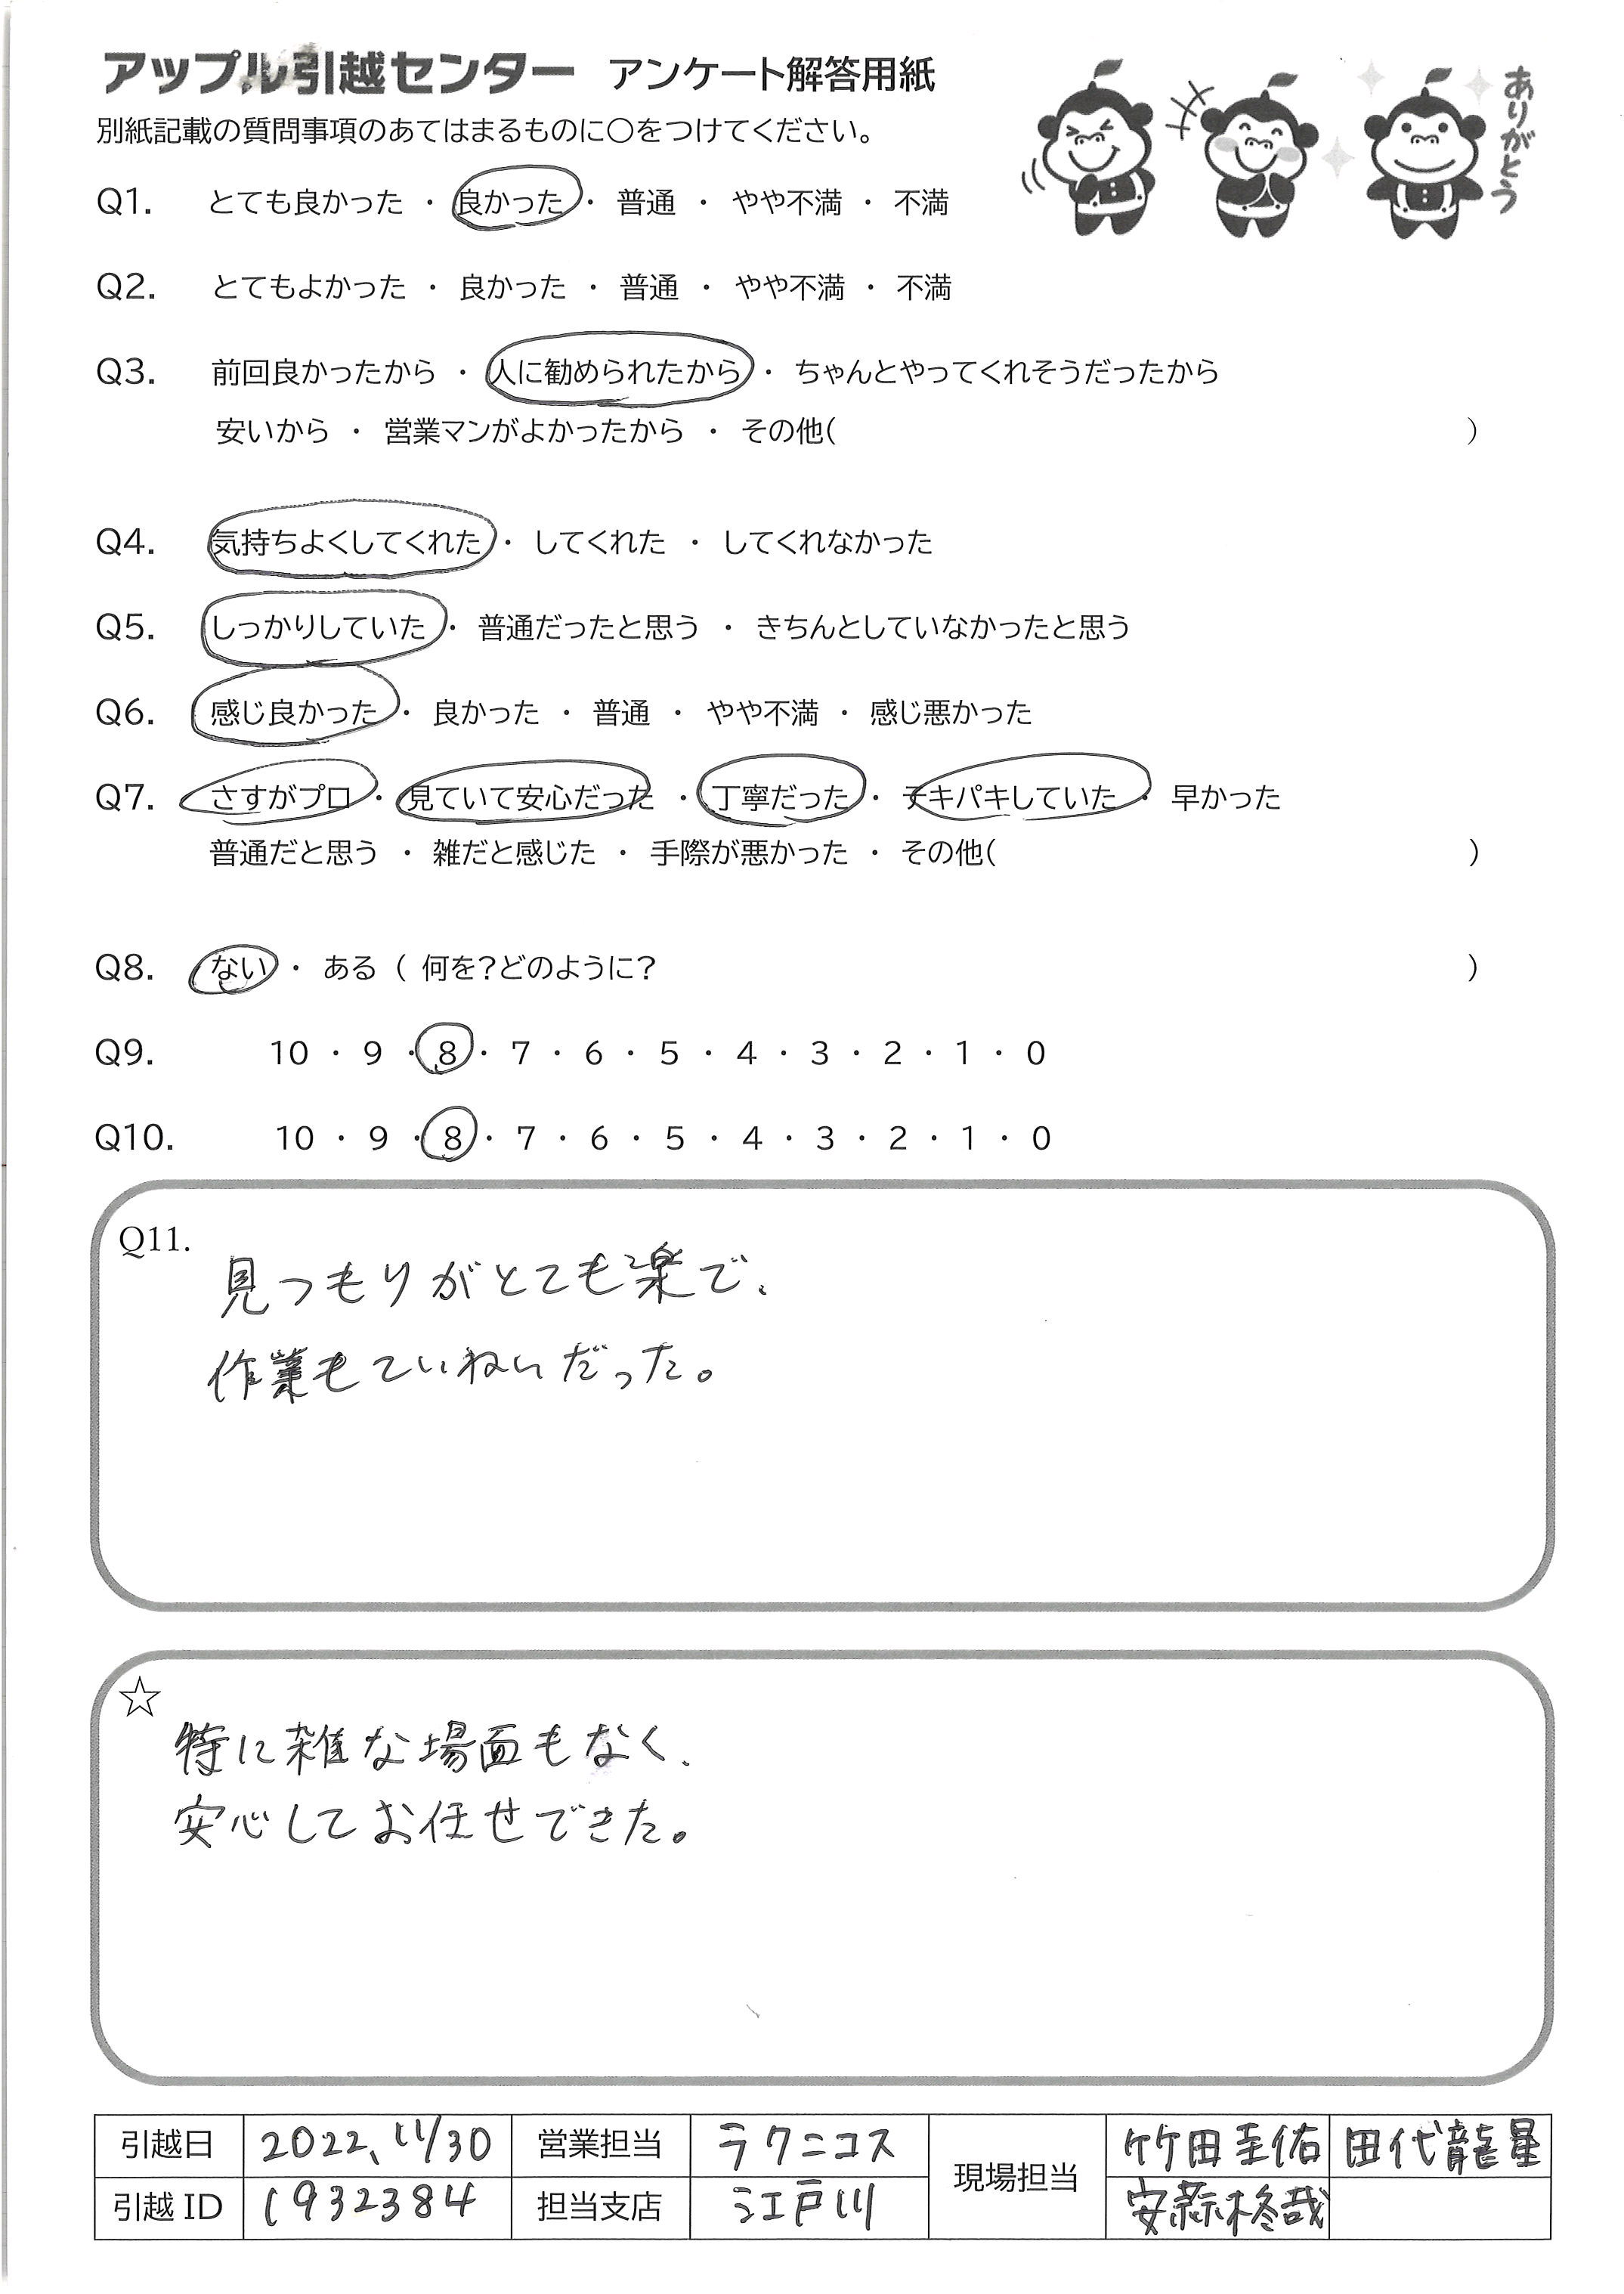 アップル引越センター アンケート解答用紙
ありがとう
別紙記載の質問事項のあてはまるものに○をつけてください。
Q1. とても良かった ・ 良かった ・ 普通 ・ やや不満 ・ 不満
Q2. とてもよかった ・ 良かった ・ 普通 ・ やや不満 ・ 不満
Q3. 前回良かったから ・ 人に勧められたから ・ ちゃんとやってくれそうだったから
安いから ・ 営業マンがよかったから ・ その他( )
Q4. 気持ちよくしてくれた ・ してくれた ・ してくれなかった
Q5. しっかりしていた ・ 普通だったと思う ・ きちんとしていなかったと思う
Q6. 感じ良かった ・ 良かった ・ 普通 ・ やや不満 ・ 感じ悪かった
Q7. さすがプロ ・ 見ていて安心だった ・ 丁寧だった ・ テキパキしていた ・ 早かった
普通だと思う ・ 雑だと感じた ・ 手際が悪かった ・ その他( )
Q8. ない ・ ある ( 何を?どのように? )
Q9. 10 ・ 9 ・ 8 ・ 7 ・ 6 ・ 5 ・ 4 ・ 3 ・ 2 ・ 1 ・ 0
Q10. 10 ・ 9 ・ 8 ・ 7 ・ 6 ・ 5 ・ 4 ・ 3 ・ 2 ・ 1 ・ 0
Q11.
見つもりがとても楽で、
作業もていねいだった。
☆
特に雑な場面もなく、
安心してお任せできた。
引越日 2022、11/30 営業担当 ラクニコス 現場担当 竹田圭佑 田代龍星
引越ID 1932384 担当支店 江戸川